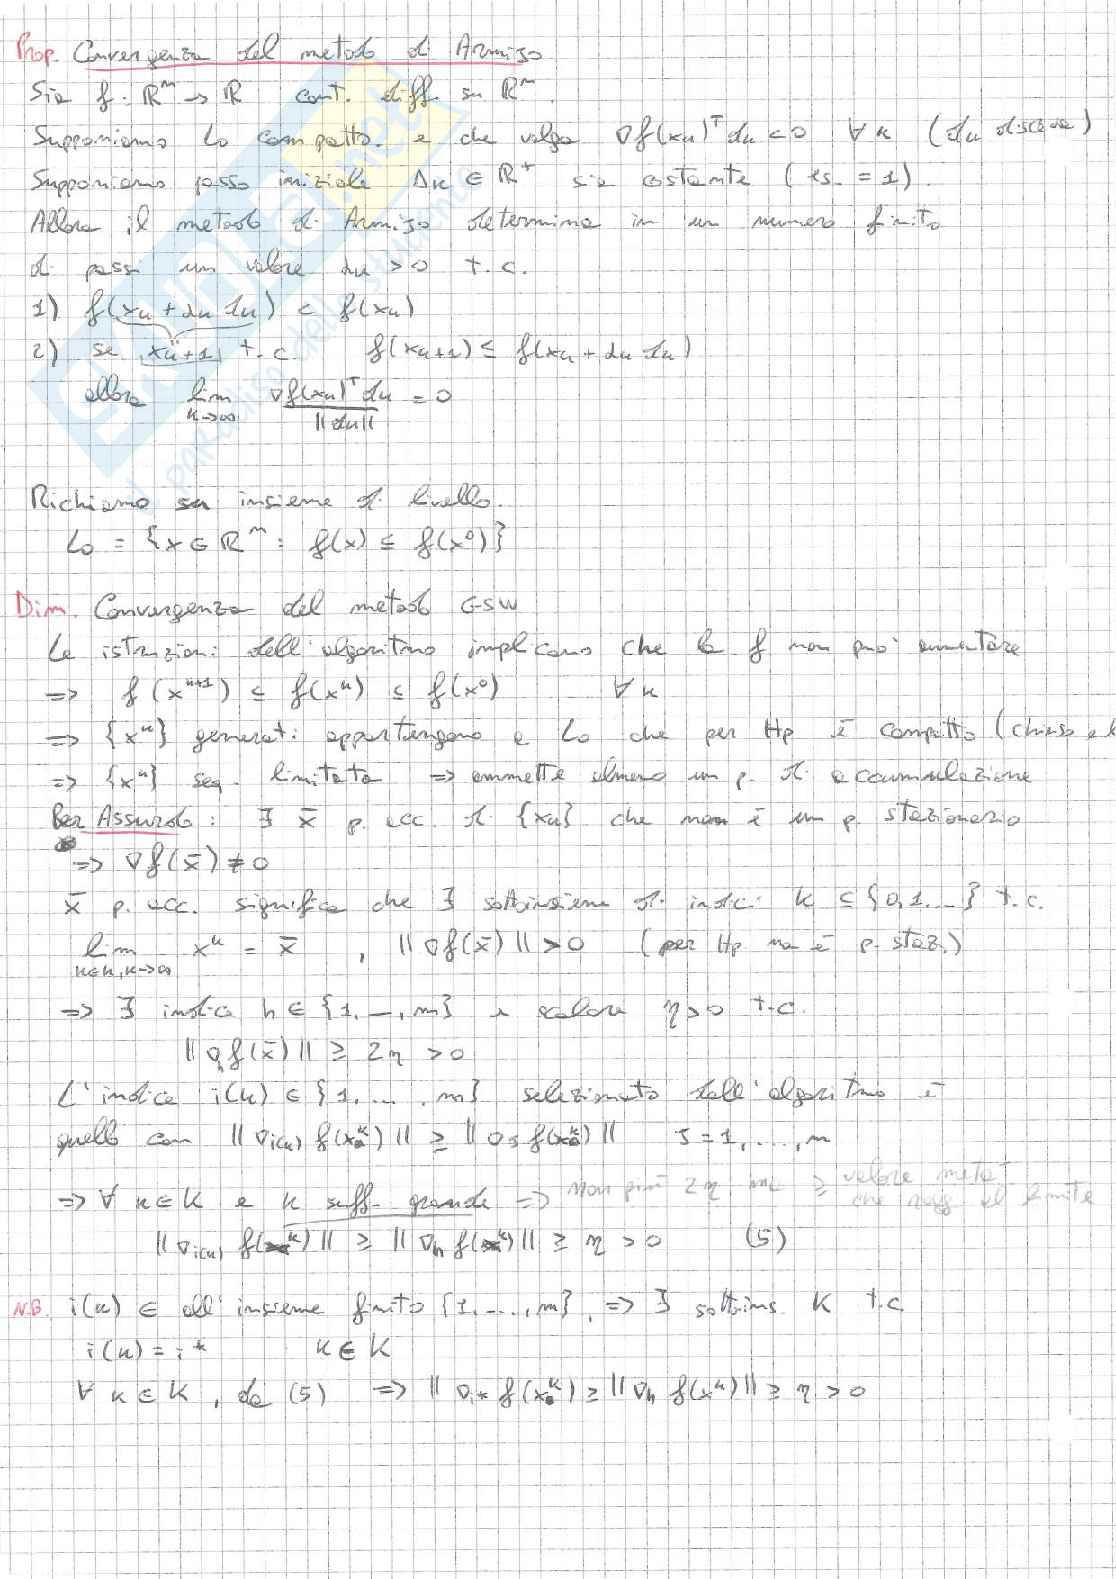 Prop. Convergenza del metodo di Armijo
Sia f: ℝⁿ → ℝ cont. diff. su ℝⁿ.
Supponiamo L₀ compatto. e che valga ∇f(xₖ)ᵀ dₖ < 0 ∀ k (dₖ discesa)
Supponiamo passo iniziale Δₖ ∈ ℝ⁺ sia costante (es. = 1).
Allora il metodo di Armijo determina in un numero finito
di passi un valore αₖ > 0 t.c.
1) f(xₖ + αₖ dₖ) < f(xₖ)
2) se xₖ₊₁ t.c. f(xₖ₊₁) ≤ f(xₖ + αₖ dₖ)
allora lim k→∞ ∇f(xₖ)ᵀ dₖ / ||dₖ|| = 0
Richiamo su insieme di livello.
L₀ = {x ∈ ℝⁿ : f(x) ≤ f(x⁰)}
Dim. Convergenza del metodo G-SW
Le istruzioni dell'algoritmo implicano che la f non può aumentare
=> f(xᵏ⁺¹) ≤ f(xᵏ) ≤ f(x⁰) ∀ k
=> {xᵏ} generati appartengono a L₀ che per Hp è compatto (chiuso e l
=> {xᵏ} seq. limitata => ammette almeno un p. di accumulazione
Per Assurdo: ∃ x̄ p. acc. di {xₖ} che non è un p. stazionario
=> ∇f(x̄) ≠ 0
x̄ p. acc. significa che ∃ sottoinsieme di indici K ⊆ {0,1...} t.c.
lim k∈K, k→∞ xᵏ = x̄ , ||∇f(x̄)|| > 0 (per Hp no è p. staz.)
=> ∃ indice h ∈ {1, ..., m} e scalare η > 0 t.c.
||∇ₕf(x̄)|| ≥ 2η > 0
L'indice i(k) ∈ {1, ..., m} selezionato dall'algoritmo è
quello con ||∇i(k) f(xᵏ)|| ≥ ||∇ⱼ f(xᵏ)|| j = 1, ..., m
=> ∀ k ∈ K e k suff. grande => Non più 2η ma ≥ valore metà
che agg. al limite
||∇i(k) f(xᵏ)|| ≥ ||∇ₕ f(xᵏ)|| ≥ η > 0 (5)
N.B. i(k) ∈ all'insieme finito {1, ..., m}, => ∃ sottoins K t.c.
i(k) = i* k ∈ K
∀ k ∈ K, da (5) => ||∇i* f(xᵏ) ≥ ||∇ₕ f(xᵏ)|| ≥ η > 0